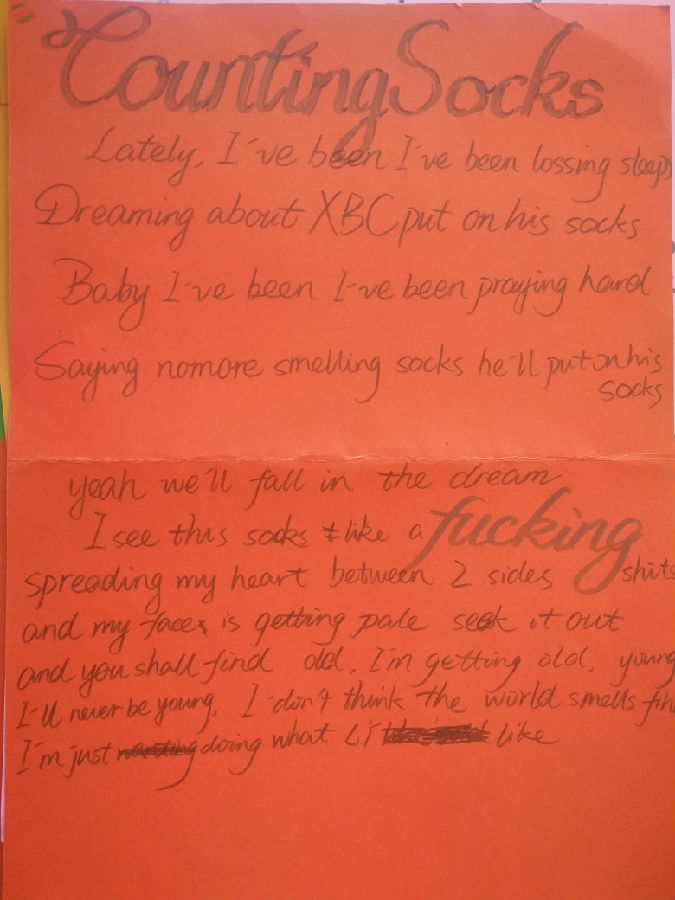 Counting Socks
Lately, I've been I've been lossing sleep
Dreaming about XBC put on his socks
Baby I've been I've been praying hard
Saying nomore smelling socks he'll put on his
socks
yeah we'll fall in the dream
I see this socks like a fucking
spreading my heart between 2 sides shits
and my face is getting pale seek it out
and you shall find old, I'm getting old, young
I'll never be young, I don't think the world smells fin
I'm just doing what like